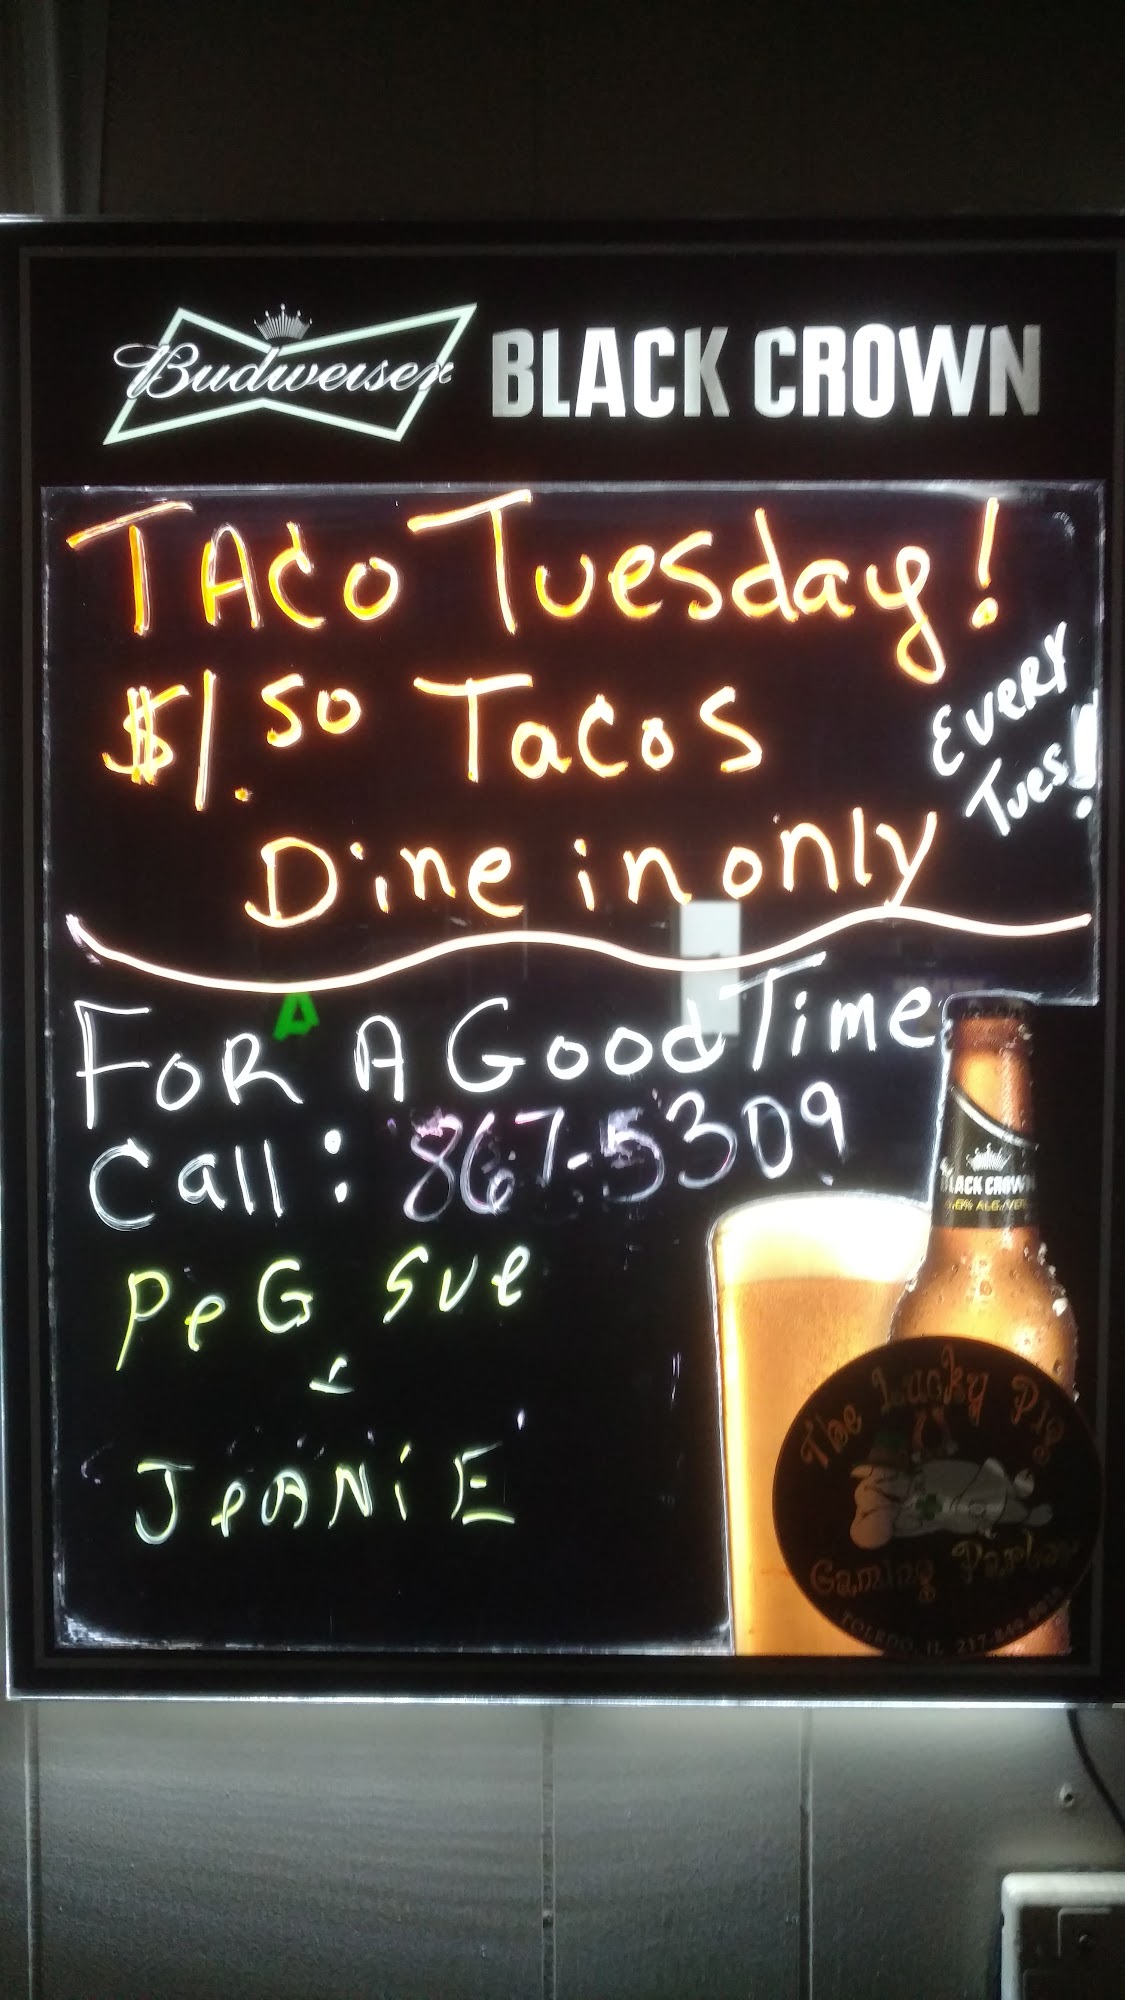 Budweiser BLACK CROWN
TACo Tuesday!
$1.50 Tacos
EVERY
Tues!
Dine in only
A
FOR A Good Time
Call: 867-5309
PeG Sue
JeANiE
BLACK CROWN
The Lucky Pig
Gaming Parlor
TOLEDO, IL